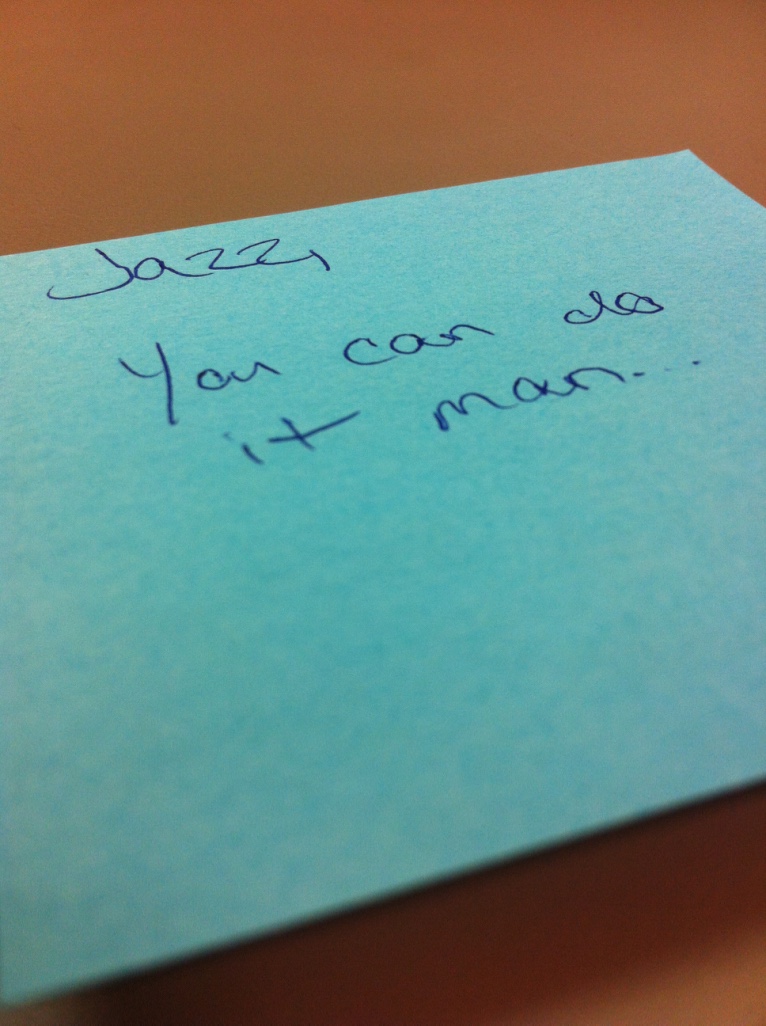 Jazz,
You can do
it man...